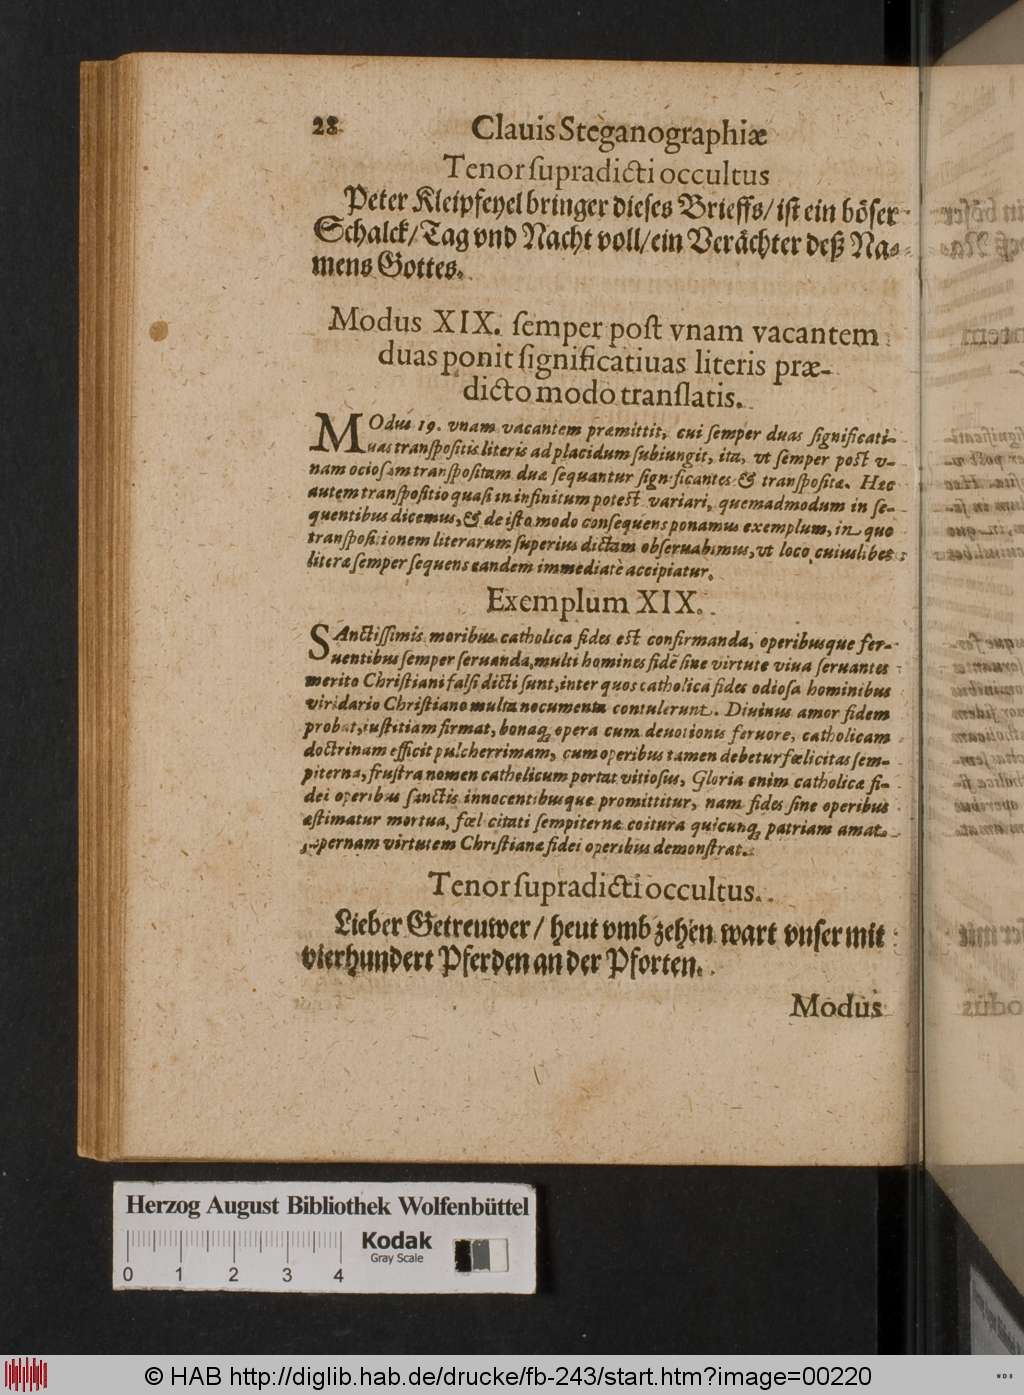 28
Clauis Steganographiæ
Tenor ſupradicti occultus
Peter Kleipfeyel bringer dieſes Brieffs/ iſt ein böſer
Schalck/ Tag vnd Nacht voll/ ein Verächter deß Na-
mens Gottes.
Modus XIX. ſemper poſt vnam vacantem
duas ponit ſignificatiuas literis præ-
dicto modo tranſlatis.
MOdus 19. vnam vacantem præmittit, cui ſemper duas ſignificati-
uas tranſpoſitis literis ad placidum ſubiungit, ita, vt ſemper poſt v-
nam ocioſam tranſpoſitam duæ ſequantur ſignificantes & tranſpoſitæ. Hæc
autem tranſpoſitio quaſi in infinitum poteſt variari, quemadmodum in ſe-
quentibus dicemus, & de iſto modo conſequens ponamus exemplum, in quo
tranſpoſitionem literarum ſuperius dictam obſeruabimus, vt loco cuiuslibet
literæ ſemper ſequens eandem immediatè accipiatur.
Exemplum XIX.
SAnctiſſimis moribus catholica fides eſt confirmanda, operibusque fer-
uentibus ſemper ſeruanda, multi homines fidē ſine virtute viua ſeruantes
merito Chriſtiani falſi dicti ſunt, inter quos catholica fides odioſa hominibus
viridario Chriſtiano multa nocumenta contulerunt. Diuinus amor fidem
probat, iuſtitiam firmat, bonaq; opera cum deuotionis feruore, catholicam
doctrinam efficit pulcherrimam, cum operibus tamen debetur fœlicitas ſem-
piterna, fruſtra nomen catholicum portat vitioſus, Gloria enim catholicæ fi-
dei operibus ſanctis innocentibusque promittitur, nam fides ſine operibus
æſtimatur mortua, fœlicitati ſempiternæ coitura quicunq; patriam amat
ſupernam virtutem Chriſtianæ fidei operibus demonſtrat.
Tenor ſupradicti occultus.
Lieber Getreuwer/ heut vmb zehen wart vnſer mit
vierhundert Pferden an der Pforten.
Modus
Herzog August Bibliothek Wolfenbüttel
Kodak
Gray Scale
0 1 2 3 4
© HAB http://diglib.hab.de/drucke/fb-243/start.htm?image=00220